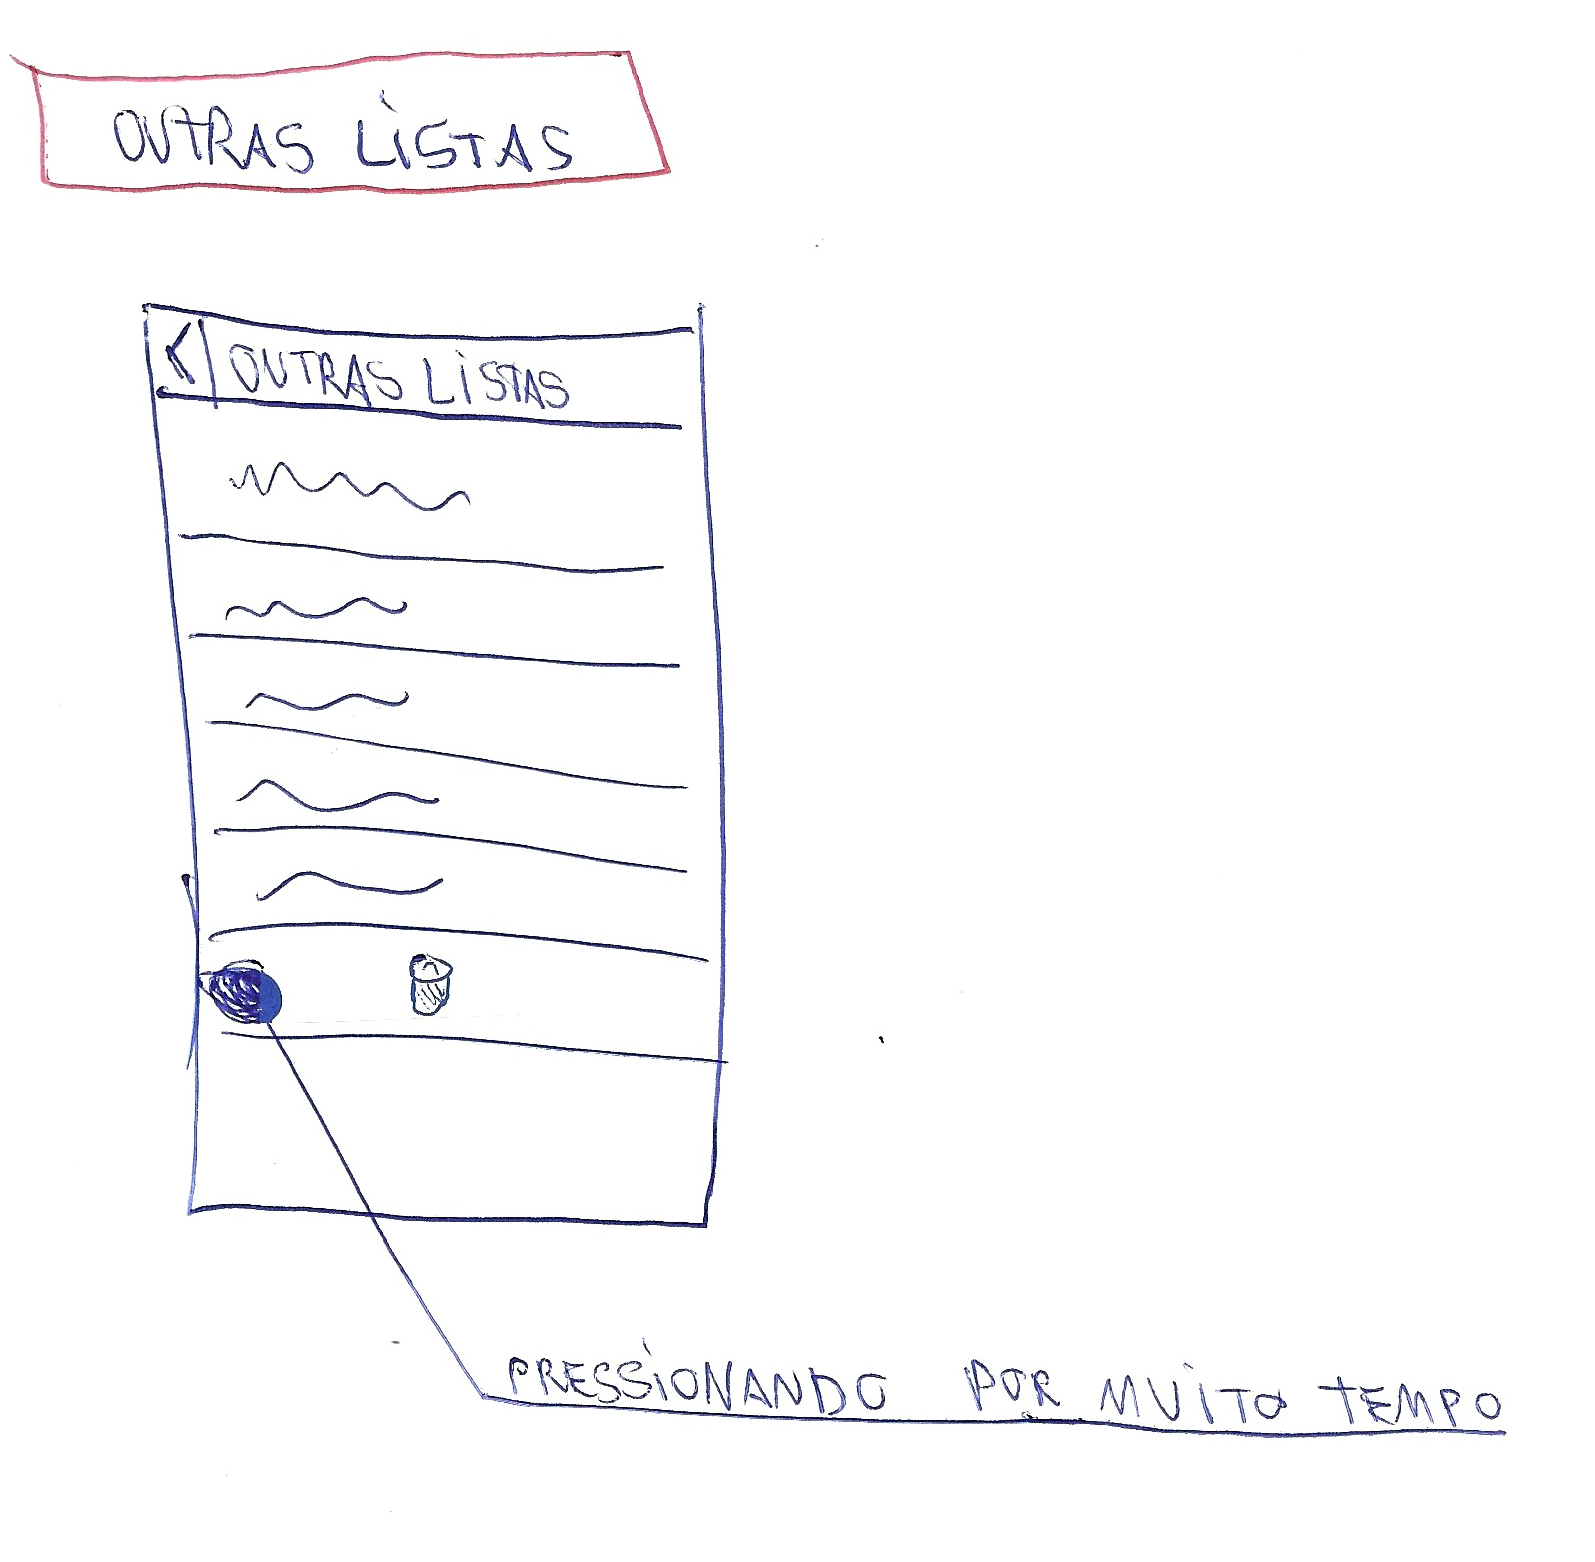 OUTRAS LISTAS
< OUTRAS LISTAS
PRESSIONANDO POR MUITO TEMPO